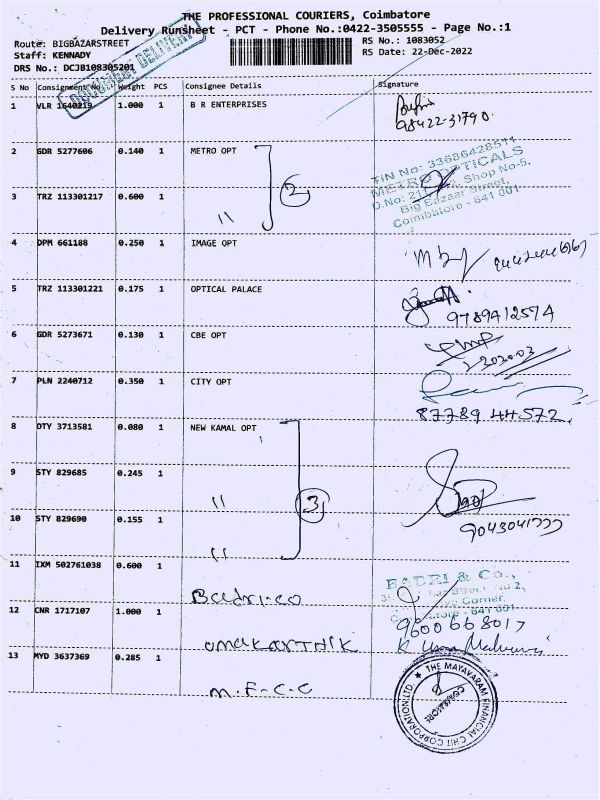 THE PROFESSIONAL COURIERS, Coimbatore
Delivery Runsheet - PCT - Phone No.:0422-3505555 - Page No.:1
Route: BIGBAZARSTREET
RS No.: 1083052
Staff: KENNADY
RS Date: 22-Dec-2022
DRS No.: DCJB108305201
DELIVERY
S No Consignment No. Weight PCS Consignee Details Signature
1 VLR 1640219 1.000 1 B R ENTERPRISES
98422-31790
2 GDR 5277606 0.140 1 METRO OPT
TIN No: 33686428511
METRO OPTICALS
D.No: Shop No-5,
Big Bazaar Street,
Coimbatore - 641 001
3 TRZ 113301217 0.600 1 〃 2
4 DPM 661188 0.250 1 IMAGE OPT
5 TRZ 113301221 0.175 1 OPTICAL PALACE
9789412574
6 GDR 5273671 0.130 1 CBE OPT
7 PLN 2240712 0.350 1 CITY OPT
87789 44572
8 DTY 3713581 0.080 1 NEW KAMAL OPT
9 STY 829685 0.245 1 〃 3
10 STY 829690 0.155 1 〃
9043041777
11 IXM 502761038 0.600 1 Badri.co
BADRI & Co.,
Corner,
641 001
12 CNR 1717107 1.000 1 Umakarthik
9600668017
K Uma
13 MYD 3637369 0.285 1 M.F.C.C
THE MAYAVARAM FINANCIAL CHIT CORPORATION LTD.
COIMBATORE